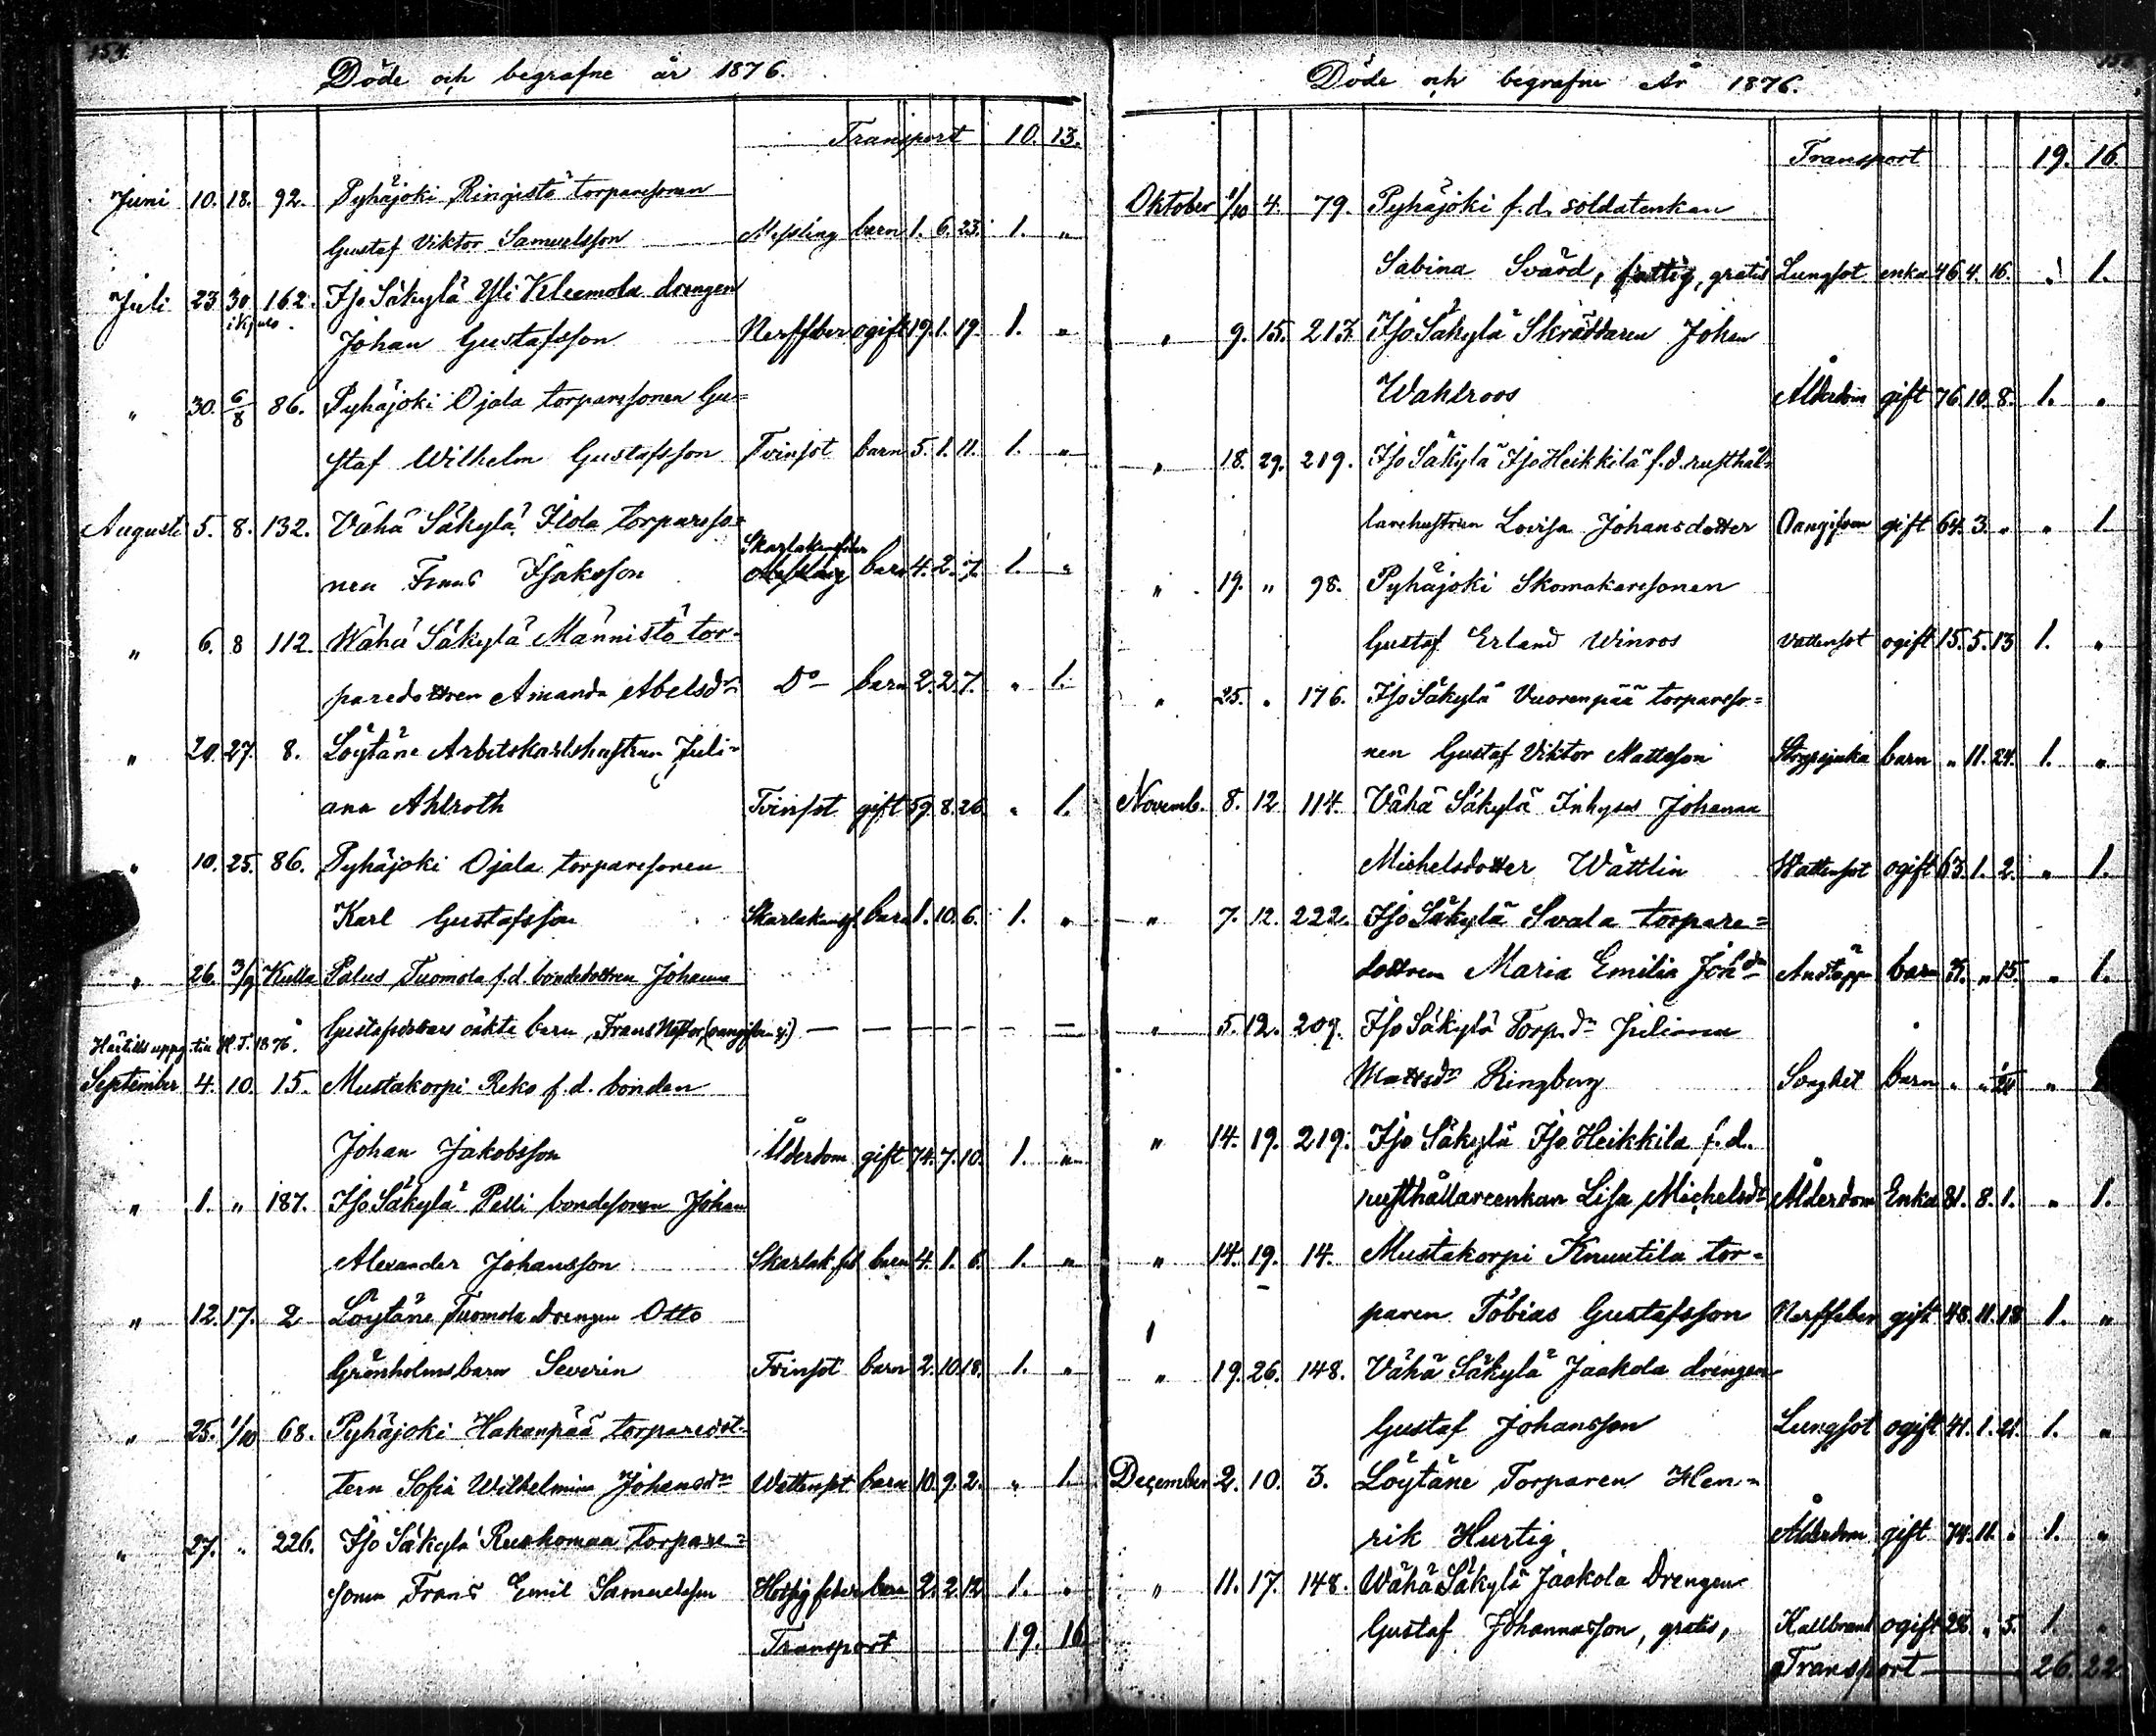 154.
Döde och begrafne år 1876.
Transport 10. 13.
Juni 10. 18. 92. Pyhäjoki Ringistö torparesonen
Gustaf Viktor Samuelsson Messling barn 1. 6. 23. 1. "
Juli 23 30 162. Iso Säkylä Yli Kleemola drengen
Johan Gustafsson Nerffeber ogift 19. 1. 19. 1. "
" 30. 6/8 86. Pyhäjoki Ojala torparesonen Gu=
staf Wilhelm Gustafsson Tvinsot barn 5. 1. 11. 1. "
Augusti 5. 8. 132. Vähä Säkylä Ilola torpareso=
nen Frans Isaksson Skarlakansfeber barn 4. 2. 7. 1. "
" 6. 8 112. Wähä Säkylä Männistö tor-
paredottren Amanda Abelsdr Do barn 2. 2. 7. " 1.
" 20. 27. 8. Löytäne Arbetskarlshustrun Juli=
ana Ahlroth Tvinsot gift 59. 8. 26. " 1.
" 10. 25. 86. Pyhäjoki Ojala torparesonen
Karl Gustafsson Skarlakansf. barn 1. 10. 6. 1. "
" 26. 3/9 Kulla Palus Tuomola f.d. bondedottren Johanna
Gustafsdotters oäkta barn, Frans Nestor, (oangifven sj.) — — — — — —
Härtills uppg. till H.T. 1876.
September 4. 10. 15. Mustakorpi Reko f.d. bonden
Johan Jakobsson Ålderdom gift 74. 7. 10. 1. "
" 1. " 187. Iso Säkylä Pelli bondesonen Johan
Alexander Johansson Skarlak.feb barn 4. 1. 6. 1. "
" 12. 17. 2 Löytäne Tuomola drengen Otto
Grönholms barn Severin Tvinsot barn 2. 10. 18. 1. "
" 25. 1/10 68. Pyhäjoki Hakanpää torparedot-
tern Sofia Wilhelmina Johansdr Wattensot barn 10. 9. 2. " 1.
" 27. " 226. Iso Säkylä Ruskomaa torpare=
sonen Frans Emil Samuelsson Hetsig feber barn 2. 2. 12 1. "
Transport 19. 16
Döde och begrafne År 1876.
Transport 19. 16.
Oktober 1/10 4. 79. Pyhäjoki f.d. soldatenkan
Sabina Svärd, fattig, gratis Lungsot enka 46. 4. 16. " 1.
" 9. 15. 213. Iso Säkylä Skräddaren Johan
Wahlroos Ålderdom gift 76. 10. 8. 1. "
" 18. 29. 219. Iso Säkylä Iso Heikkilä f.d. rusthål-
larehustrun Lovisa Johansdotter Oangifven gift 64. 3. " " 1.
" 19. " 98. Pyhäjoki Skomakaresonen
Gustaf Erland Winroos Vattensot ogift 15. 5. 13 1. "
" 25. " 176. Iso Säkylä Vuorenpää torpareso=
nen Gustaf Viktor Mattsson Strypsjuka barn " 11. 24. 1. "
Novemb. 8. 12. 114. Vähä Säkylä Inhyses Johanna
Michelsdotter Wättlin Wattensot ogift 63. 1. 2. " 1.
" 7. 12. 222. Iso Säkylä Svala torpare=
dottren Maria Emilia Johdr Andtäppa barn " 15. " 1.
" 5. 12. 209. Iso Säkylä Torp.dr Juliana
Mattsdr Ringberg Svaghet barn " " "
" 14. 19. 219. Iso Säkylä Iso Heikkilä f.d.
rusthållareenkan Lisa Michelsdr Ålderdom Enka 81. 8. 1. " 1.
" 14. 19. 14. Mustakorpi Knuutila tor=
paren Tobias Gustafsson Nerffeber gift 48. 11. 18 1. "
" 19. 26. 148. Vähä Säkylä Jaakola drengen
Gustaf Johansson Lungsot ogift 41. 1. 21. 1. "
December 2. 10. 3. Löytäne Torparen Hen=
rik Hurtig. Ålderdom gift 74. 11. " 1. "
" 11. 17. 148. Wähä Säkylä Jaakola Drengen
Gustaf Johannasson, gratis, Kallbrand ogift 28. " 5. 1. "
Transport 26. 22